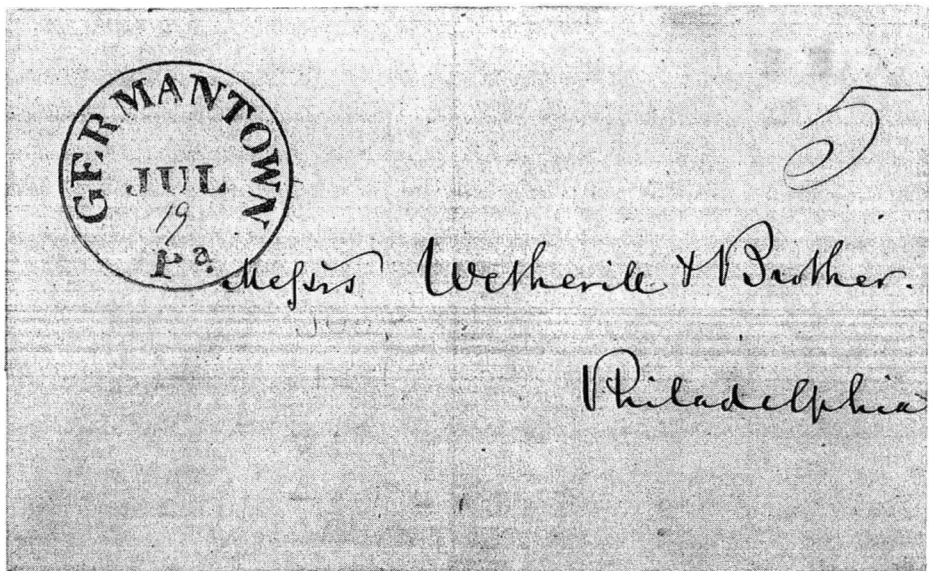 GERMANTOWN
JUL
19
Pa
5
Messrs Wetherill & Brother.
Philadelphia